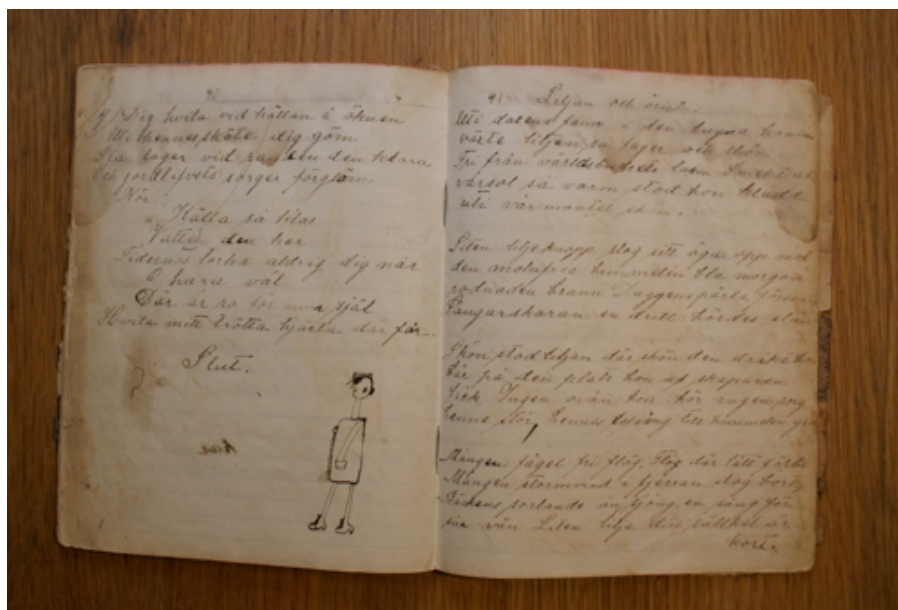 Dig hvila vid källan i öknen
Uti hennes sköte dig göm
Slå läger vid randen den klara
Och jordlifvets sorger förglöm
Kör
Källa så klar
Vatten den har
Tidernas torka aldrig dig når
O huru väl
Där är ro för min själ
Hvila mitt trötta hjärta där får.
Slut.
91 Liljan och
Uti dalens famn i den lugna
växte liljan så fager och skön
Fri från världs
vårsol så varm stod hon klädd
uti vårmantel skön.
Liten liljeknopp slog sitt öga opp mot
den himmelen blå morgon
rodnaden brann Daggens pärla
Sångarskaran en drill hördes slå
Skön stod liljan där skön den dräkt
där på den plats hon af skaparen
fick Ingen ovän hon hör ingen sorg
henne stör, hennes lofsång till himmelen
Mången fågel fri flög, flög där lätt
Mången stormvind i fjerran
Bäckens sorlande sjöng en sång för
sin vän Liten lilja din är
kort.